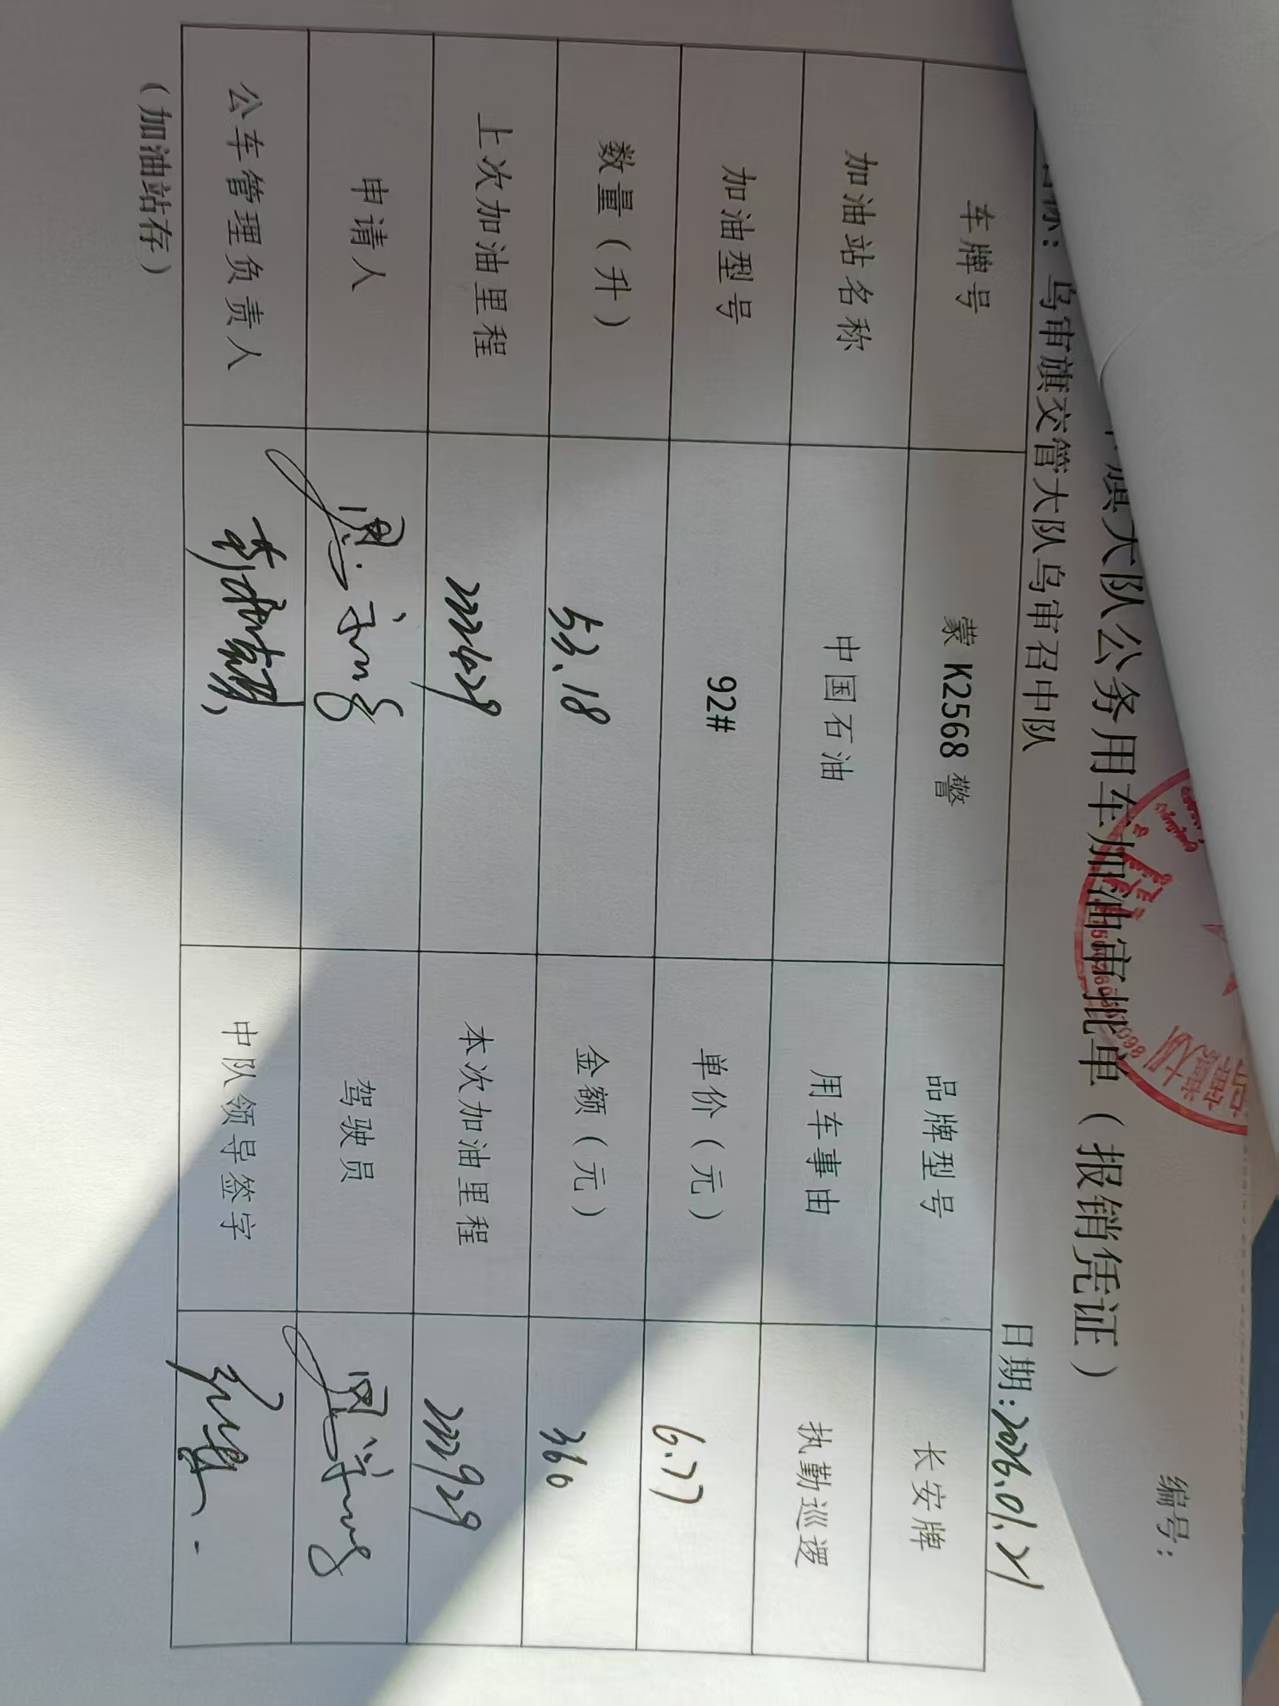 编号：
旗大队公务用车加油审批单（报销凭证）
名称：乌审旗交管大队乌审召中队 日期:2026.01.21
车牌号 蒙 K2568 警 品牌型号 长安牌
加油站名称 中国石油 用车事由 执勤巡逻
加油型号 92# 单价（元） 6.77
数量（升） 53.18 金额（元） 360
上次加油里程 222429 本次加油里程 222929
申请人 驾驶员
公车管理负责人 中队领导签字
（加油站存）